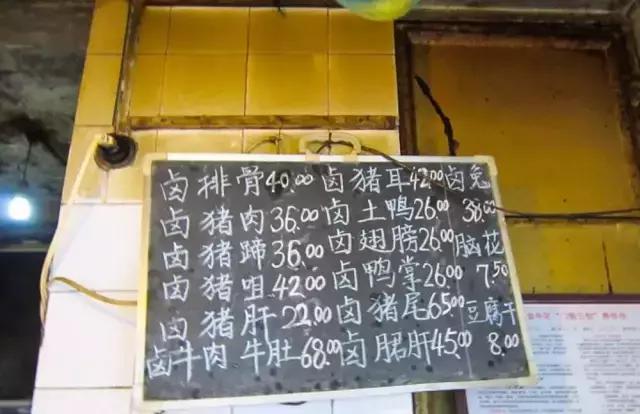 卤排骨40.00 卤猪耳42.00 卤兔
卤猪肉36.00 卤土鸭26.00 38.00
卤猪蹄36.00 卤翅膀26.00 脑花
卤猪咀42.00 卤鸭掌26.00 7.50
卤猪肝22.00 卤猪尾65.00 豆腐干
卤牛肉牛肚68.00 卤䐃肝45.00 8.00